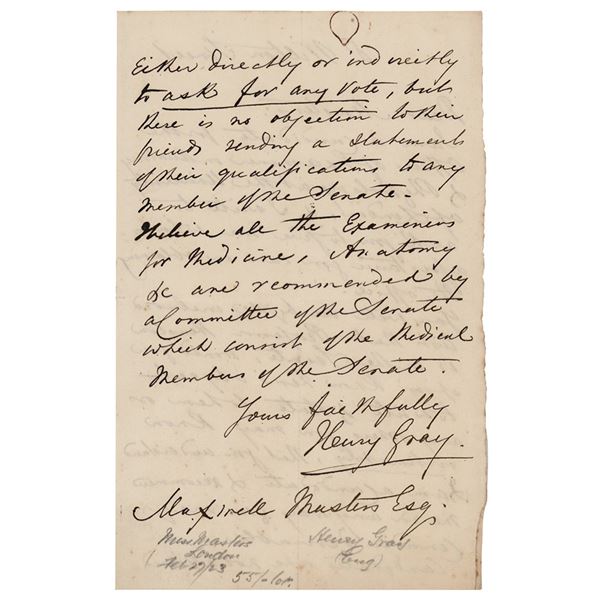 Either directly or indirectly
to ask for any vote, but
there is no objection to their
friends sending a statements
of their qualifications to any
member of the Senate.
I believe all the Examiners
for Medicine, Anatomy
&c are recommended by
a Committee of the Senate
which consist of the Medical
Members of the Senate.
Yours faithfully
Henry Gray.
Maxwell Masters Esq.
Miss Masters
London
Feb 27/23
Henry Gray
(Eng)
55/-